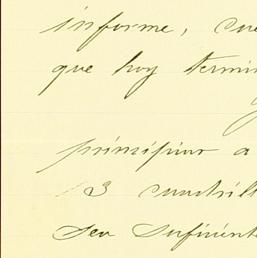 informe, cu
que hoy termin
y
principiar a
3 cuadril
sea suficient